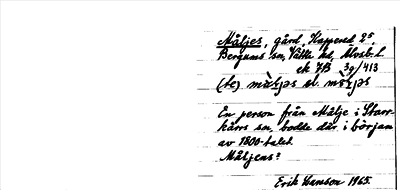 Måljes, gård, Kapperad 25,
Bergums sn, Vättle hd, Älvsb. l.
ek JB 39/413
(te) mὰljəs el. mὸljəs
En person från Målje i Starr-
kärrs sn, bodde där i början
av 1800-talet.
Måljens?
Erik Larsson 1965.